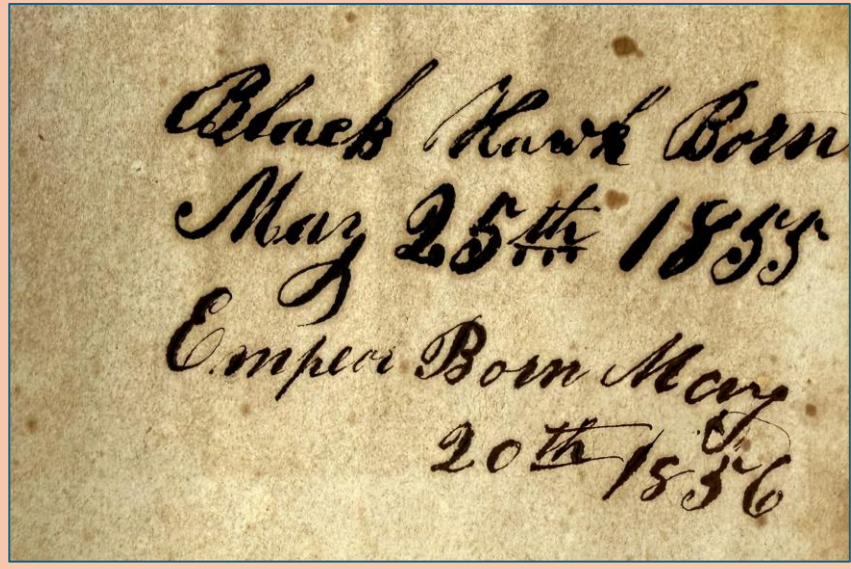 Black Hawk Born
May 25th 1855
Emperor Born May
20th 1856